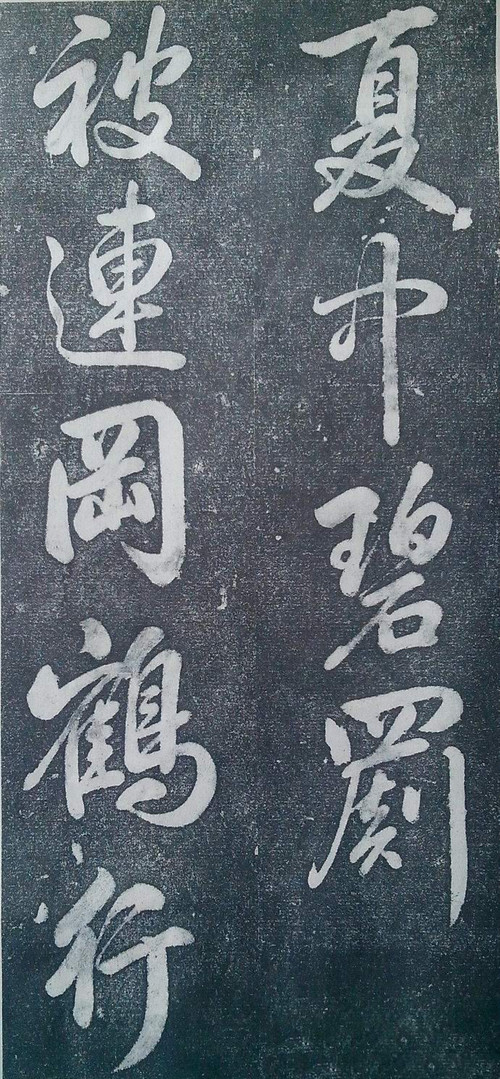 夏中碧罽
被連岡鶴行